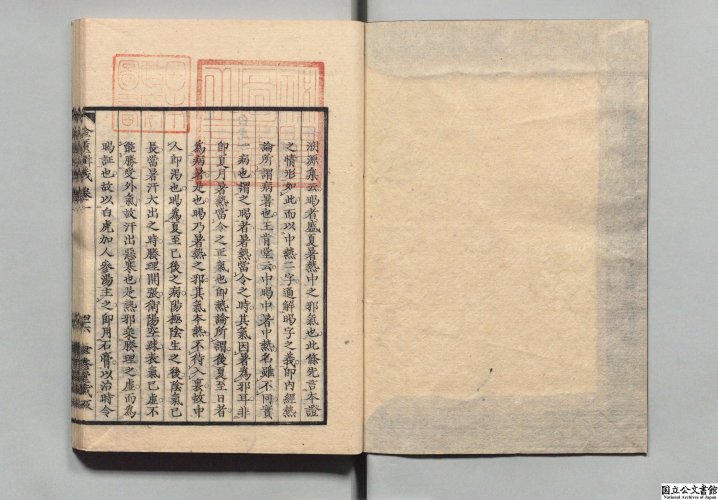 溯源集云暍者盛夏暑熱中之邪氣也此條先言本證
之情形如此而以中熱二字通解暍字之義即内經熱
論所謂病暑也王肯堂云中暍中暑中熱名雖不同實
一病也謂之暍者暑熱當令之時其氣因暑為邪耳非
即夏月暑熱當令之正氣也即熱論所謂後夏至日者
為病暑是也暍乃暑熱之邪其氣本熱不待入裏故中
人即渴也暍為夏至已後之病陽極陰生之後陰氣已
長當暑汗大出之時腠理開張衛陽空疎表氣已虚不
能勝受外氣故汗出惡寒也是熱邪乘腠理之虚而為
暍証也故以白虎加人參湯主之即用石膏以治時令
卷一
国立公文書館
National Archives of Japan